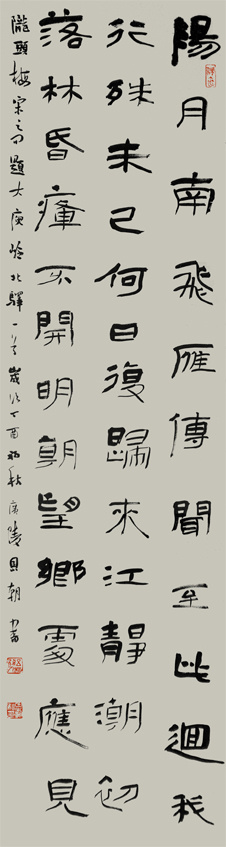 陽月南飛雁傳聞至此迴我
行殊未已何日復歸來江靜潮初
落林昏瘴不開明朝望鄉處應見
隴頭梅宋之問題大庾嶺北驛一首歲次丁酉初秋